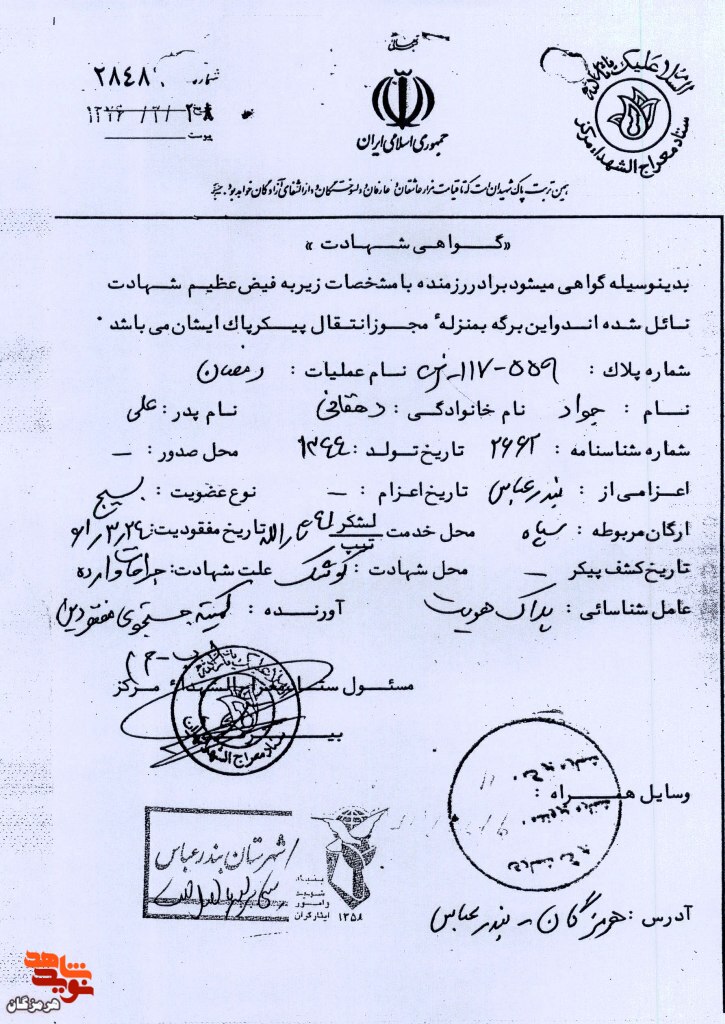 بسمه تعالی
السلام علیک یا ثارالله
ستاد معراج الشهداء مرکز
جمهوری اسلامی ایران
شماره ۲۸۴۸۰
پیوست
همین تربت پاک شهیدان است که تا قیامت مزار عاشقان و عارفان و دلسوختگان و دارالشفای آزادگان خواهد بود. خمینی
«گواهی شهادت»
بدینوسیله گواهی میشود برادر رزمنده با مشخصات زیر به فیض عظیم شهادت
نائل شده اند و این برگه بمنزلهٔ مجوز انتقال پیکر پاك ایشان می باشد.
شماره پلاك : ۵۵۹-۱۱۷ـ نام عملیات : رمضان
نــام : جواد نام خانوادگی : دهقانی نام پدر : علی
شماره شناسنامه : ۲۶۶۲ تاریخ تولد : ۱۳۴۴ محل صدور : ــ
اعزامی از : بندرعباس تاریخ اعزام : ــ نوع عضویت : بسیج
ارگان مربوطه : سپاه محل خدمت لشگر تیپ ۴۱ ثارالله تاریخ مفقودیت : ۶۱/۳/۲۴
تاریخ کشف پیکر ــ محل شهادت : کوشک علت شهادت : جراحات وارده
عامل شناسائی : پلاک هویت آورنده : کمیته جستجوی مفقودین
مسئول ستاد معراج الشهداء مرکز
ستاد معراج الشهداء
وسایل همراه :
شهرستان بندرعباس
بنیاد
شهید
و امور
ایثارگران
۱۳۵۸
آدرس : هرمزگان - بندرعباس
نوید شاهد
هرمزگان